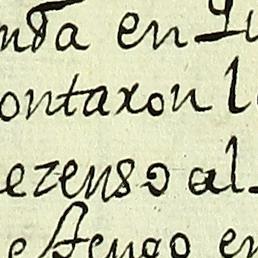 nda en Lu
ontaron l
ezenso al
e Aengo en